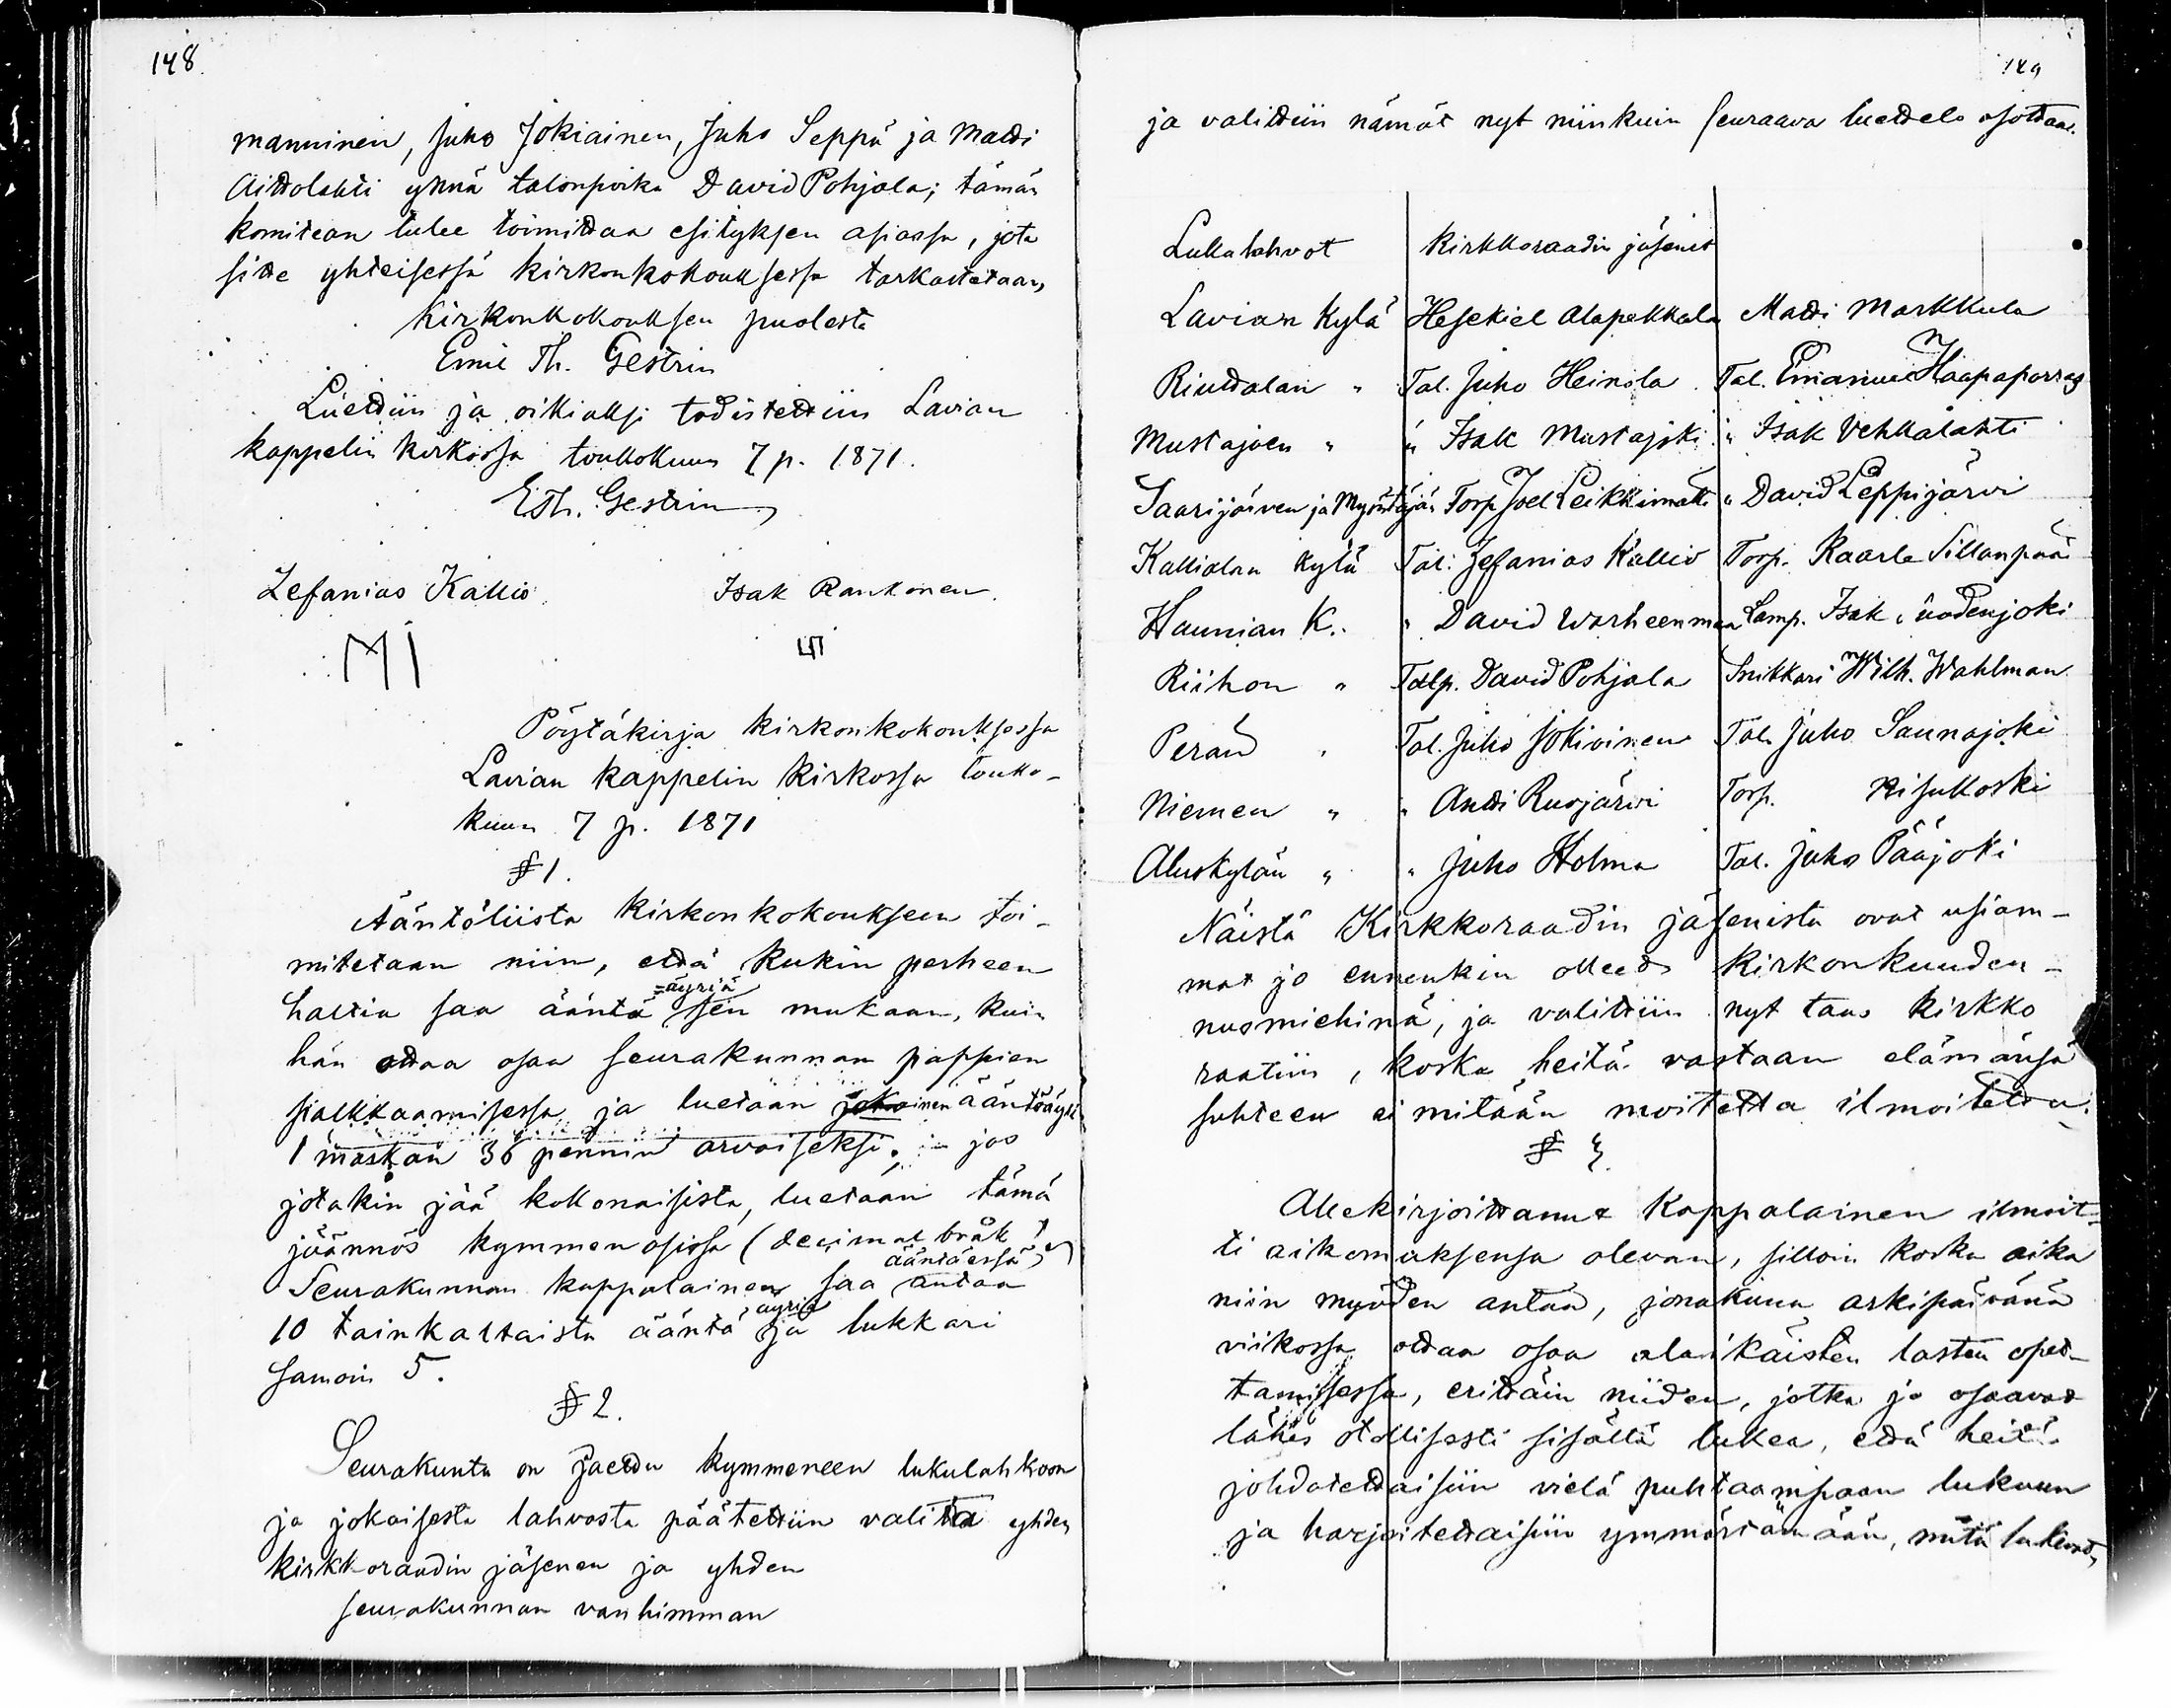 148.
manninen, Juho Jokiainen, Juho Seppä ja Matti
Aittolahti ynnä talonpoika David Pohjala; tämän
komitean tulee toimittaa esityksen asiassa, jota
sitte yhteisessä kirkonkokouksessa tarkastetaan,
Kirkonkokouksen puolesta
Emil Th. Gestrin
Luettiin ja oikiaksi todistettiin Lavian
kappelin kirkossa toukokuun 7 p. 1871.
E Th. Gestrin
Zefanias Kallio Isak Rankonen.
Pöytäkirja kirkonkokouksessa
Lavian kappelin kirkossa touko-
kuun 7 p. 1871
§ 1.
Ääntöliista kirkonkokoukseen toi-
mitetaan niin, että kukin perheen
haltia saa ääntä =äyriä sen mukaan, kuin
hän ottaa osaa seurakunnan pappien
palkkaamisessa ja luetaan jokainen ääntöäyri
1 markan 36 pennin arvoiseksi; jos
jotakin jää kokonaisista, luetaan tämä
jäännös kymmenosissa (decimal bråk)
Seurakunnan kappalainen saa ääntäessä antaa
10 tainkaltaista ääntä äyriä ja lukkari
samoin 5.
§ 2.
Seurakunta on jaettu kymmeneen lukulahkoon
ja jokaisesta lahvosta päätettiin valita yhden
kirkkoraadin jäsenen ja yhden
seurakunnan vanhimman
149
ja valittiin nämät nyt niinkuin seuraava luettelo osottaa.
Lukulahvot Kirkkoraadin jäsenet
Lavian Kylä Hesekiel Alapekkala Matti Markkula
Riuttalan " Tal. Juho Heinola Tal. Emanuel Haapaporras
Mustajoen " " Isak Mustajoki " Isak Vehkalahti
Saarijärven ja Myöntäjän Torp Joel Leikkimäki " David Leppijärvi
Kallialan Kylä Tal. Zefanias Kallio Torp. Kaarle Sillanpää
Haunian K. " David Warheenmaa Lamp. Isak uodenjoki
Riihon " Talp. David Pohjala Snikkari Wilh. Wahlman
Perän " Tal. Juho Jokivinen Tal. Juho Saunajoki
Niemen " " Antti Ruojärvi Torp. Risukoski
Aluskylän " " Juho Holma Tal. Juho Pääjoki
Näistä Kirkkoraadin jäsenistä ovat usiam-
mat jo ennenkin olleet kirkonkuuden-
nusmiehinä, ja valittiin nyt taas kirkko
raatiin, koska heitä vastaan elämänsä
suhteen ei mitään moitetta ilmoitettu.
§ 3.
Allekirjoittanut Kappalainen ilmoit-
ti aikomuksensa olevan, silloin koska aika
niin myöden antaa, jonakuna arkipäivänä
viikossa ottaa osaa alaikäisten lasten opet-
tamisessa, erittäin niiden, jotka jo osaavat
lähes otollisesti sisältä lukea, että heitä
johdatettaisiin vielä puhtaampaan lukuun
ja harjoitettaisiin ymmärtämään, mitä lukevat,